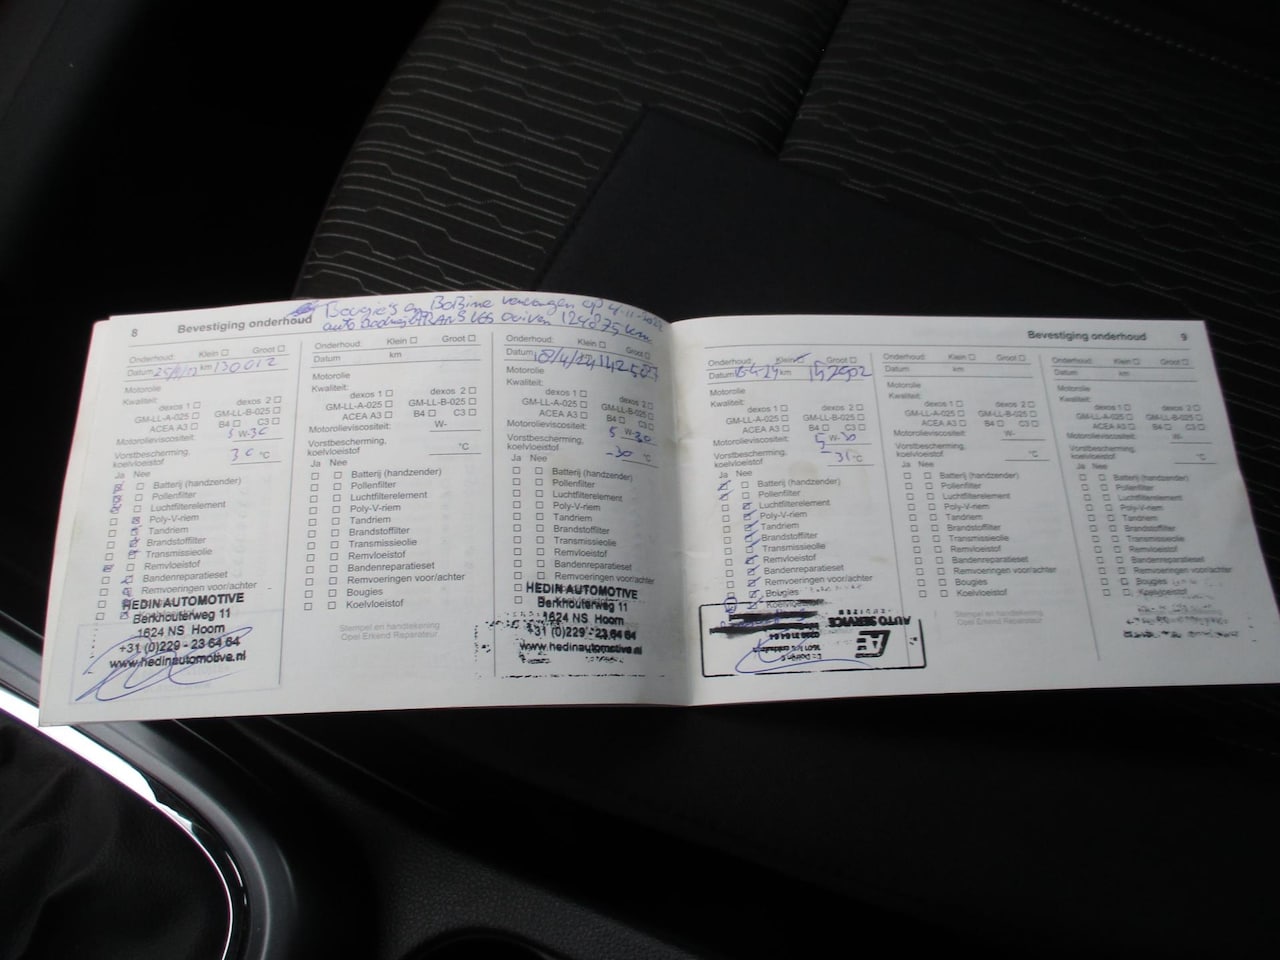 Bougie's en BoBine vervangen op 4-11-2022
8 Bevestiging onderhoud
auto 124075 km
Onderhoud: Klein Groot
Datum km 130012
Motorolie
Kwaliteit:
dexos 1 dexos 2
GM-LL-A-025 GM-LL-B-025
ACEA A3 B4 C3
Motorolieviscositeit: 5 W-30
Vorstbescherming,
koelvloeistof 30 °C
Ja Nee
Batterij (handzender)
Pollenfilter
Luchtfilterelement
Poly-V-riem
Tandriem
Brandstoffilter
Transmissieolie
Remvloeistof
Bandenreparatieset
Remvoeringen voor/achter
HEDIN AUTOMOTIVE
Berkhouterweg 11
1624 NS Hoorn
+31 (0)229 - 23 64 64
www.hedinautomotive.nl
Onderhoud: Klein Groot
Datum km
Motorolie
Kwaliteit:
dexos 1 dexos 2
GM-LL-A-025 GM-LL-B-025
ACEA A3 B4 C3
Motorolieviscositeit: W-
Vorstbescherming,
koelvloeistof °C
Ja Nee
Batterij (handzender)
Pollenfilter
Luchtfilterelement
Poly-V-riem
Tandriem
Brandstoffilter
Transmissieolie
Remvloeistof
Bandenreparatieset
Remvoeringen voor/achter
Bougies
Koelvloeistof
Stempel en handtekening
Opel Erkend Reparateur
Onderhoud: Klein Groot
Datum
Motorolie
Kwaliteit:
dexos 1 dexos 2
GM-LL-A-025 GM-LL-B-025
ACEA A3 B4 C3
Motorolieviscositeit: 5 W-30
Vorstbescherming,
koelvloeistof -30 °C
Ja Nee
Batterij (handzender)
Pollenfilter
Luchtfilterelement
Poly-V-riem
Tandriem
Brandstoffilter
Transmissieolie
Remvloeistof
Bandenreparatieset
Remvoeringen voor/achter
HEDIN AUTOMOTIVE
Berkhouterweg 11
1624 NS Hoorn
+31 (0)229 - 23 64 64
www.hedinautomotive.nl
Bevestiging onderhoud 9
Onderhoud: Klein Groot
Datum km 152902
Motorolie
Kwaliteit:
dexos 1 dexos 2
GM-LL-A-025 GM-LL-B-025
ACEA A3 B4 C3
Motorolieviscositeit: 5 W-30
Vorstbescherming,
koelvloeistof -31 °C
Ja Nee
Batterij (handzender)
Pollenfilter
Luchtfilterelement
Poly-V-riem
Tandriem
Brandstoffilter
Transmissieolie
Remvloeistof
Bandenreparatieset
Remvoeringen voor/achter
Bougies
Koelvloeistof
AUTO SERVICE
Onderhoud: Klein Groot
Datum km
Motorolie
Kwaliteit:
dexos 1 dexos 2
GM-LL-A-025 GM-LL-B-025
ACEA A3 B4 C3
Motorolieviscositeit: W-
Vorstbescherming,
koelvloeistof °C
Ja Nee
Batterij (handzender)
Pollenfilter
Luchtfilterelement
Poly-V-riem
Tandriem
Brandstoffilter
Transmissieolie
Remvloeistof
Bandenreparatieset
Remvoeringen voor/achter
Bougies
Koelvloeistof
Stempel en handtekening
Opel Erkend Reparateur
Onderhoud: Klein Groot
Datum km
Motorolie
Kwaliteit:
dexos 1 dexos 2
GM-LL-A-025 GM-LL-B-025
ACEA A3 B4 C3
Motorolieviscositeit: W-
Vorstbescherming,
koelvloeistof °C
Ja Nee
Batterij (handzender)
Pollenfilter
Luchtfilterelement
Poly-V-riem
Tandriem
Brandstoffilter
Transmissieolie
Remvloeistof
Bandenreparatieset
Remvoeringen voor/achter
Bougies
Koelvloeistof